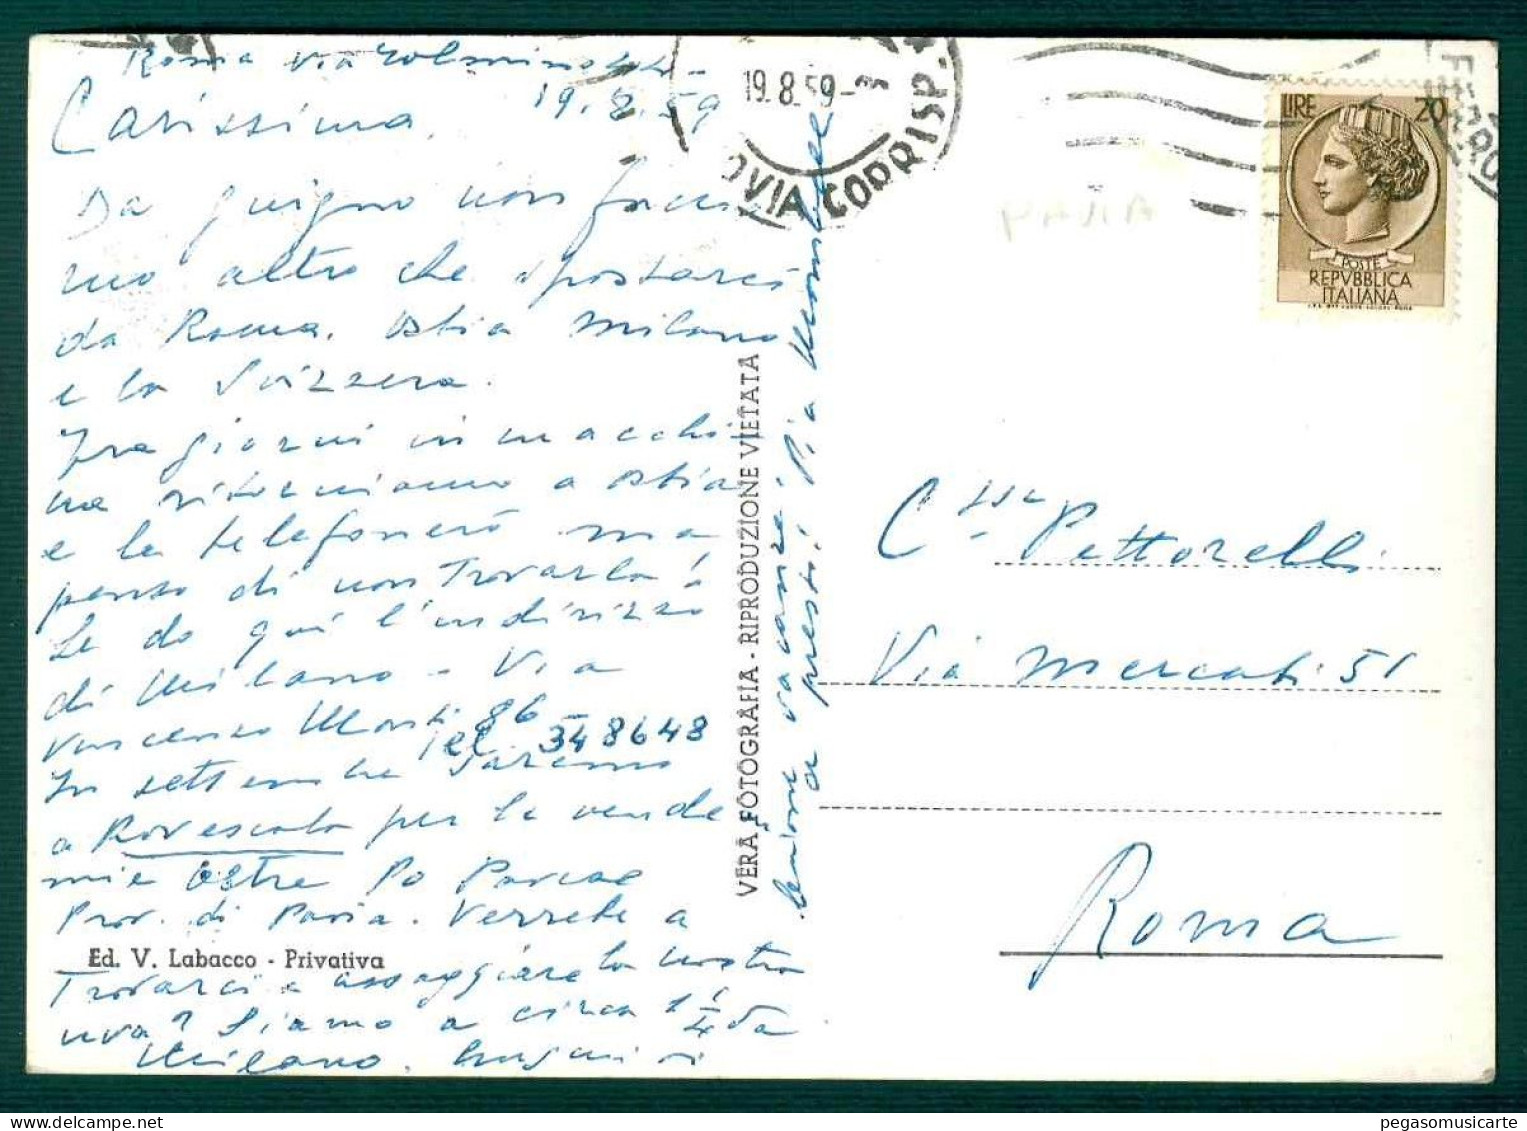 Roma via Tolmino
19.8.59
Carissima,
Da giugno non faccia
mo altro che spostarci
da Roma, Ostia Milano
e la Svizzera.
Fra giorni in macchi
na ritorniamo a Ostia
e le telefonerò ma
penso di non trovarla!
Le do qui l'indirizzo
di Milano - Via
Vincenzo Monti 86 -
Tel. 348648
In settembre saremo
a Rovescala per la vende
mie Oltre Po Pavese
Prov. di Pavia. Verrete a
trovarci e assaggiare la nostra
uva? Siamo a circa 1 1/4 da
Milano.
buone vacanze.
a presto!
Ed. V. Labacco - Privativa
VERA FOTOGRAFIA - RIPRODUZIONE VIETATA
19.8.59-
OVIA CORRISP.
FERROV
LIRE 20
POSTE
REPVBBLICA
ITALIANA
C.ssa Pettorelli
Via Mercati 51
Roma
pegasomusicarte